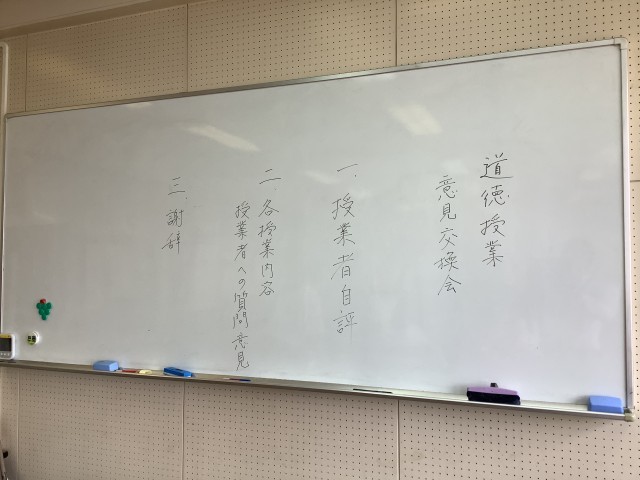 道徳授業
意見交換会
一、授業者自評
二、各授業内容
授業者への質問意見
三、謝辞